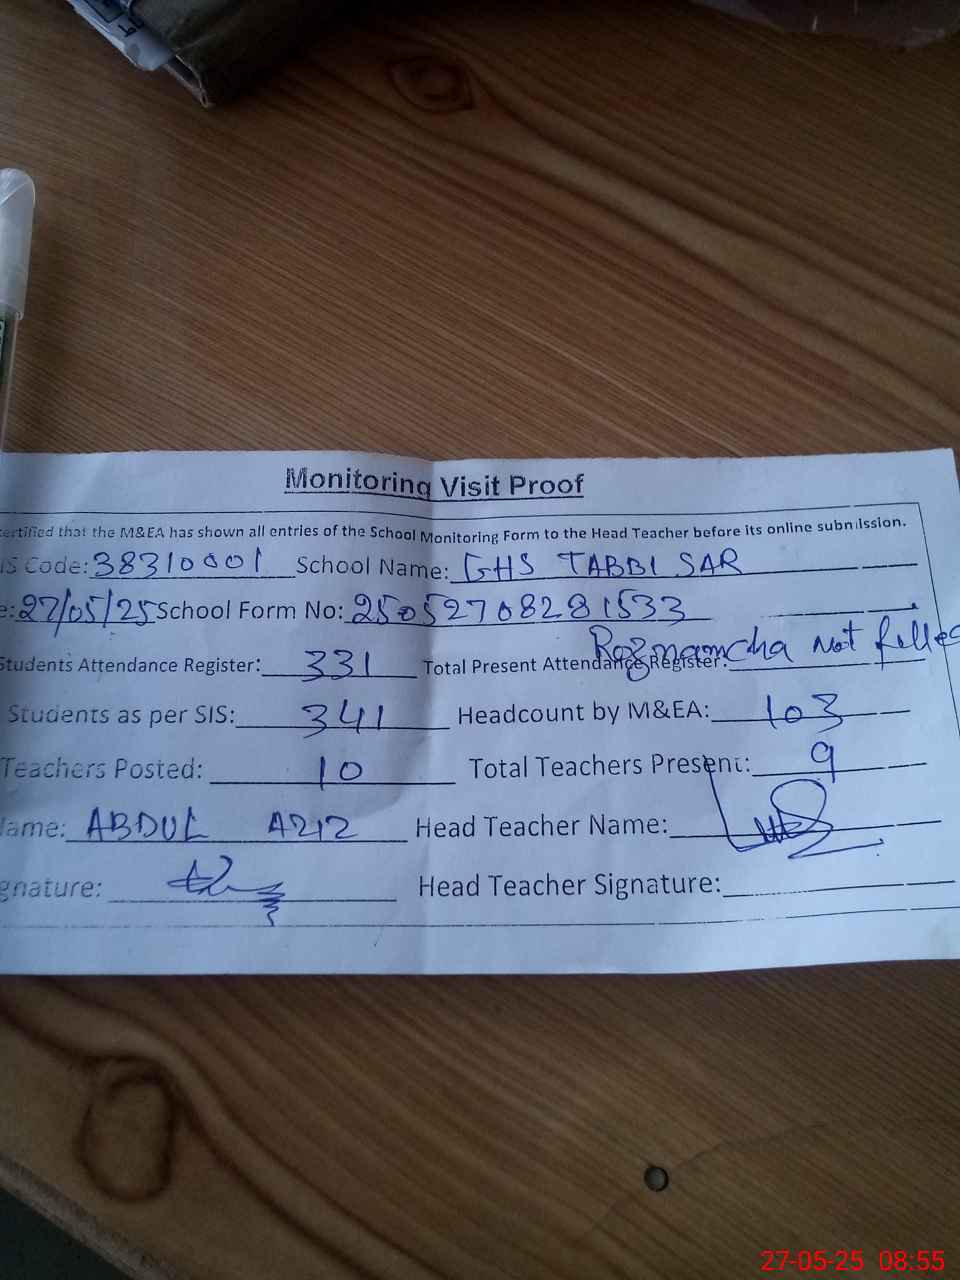 Monitoring Visit Proof
ertified that the M&EA has shown all entries of the School Monitoring Form to the Head Teacher before its online submission.
IS Code: 38310001 School Name: GHS TABBI SAR
e: 27/05/25 School Form No: 250527082281533
Students Attendance Register: 331 Total Present Attendance Register: Roznamcha not filled
Students as per SIS: 341 Headcount by M&EA: 103
Teachers Posted: 10 Total Teachers Present: 9
Name: ABDUL AZIZ Head Teacher Name:
gnature: Head Teacher Signature:
27-05-25 08:55